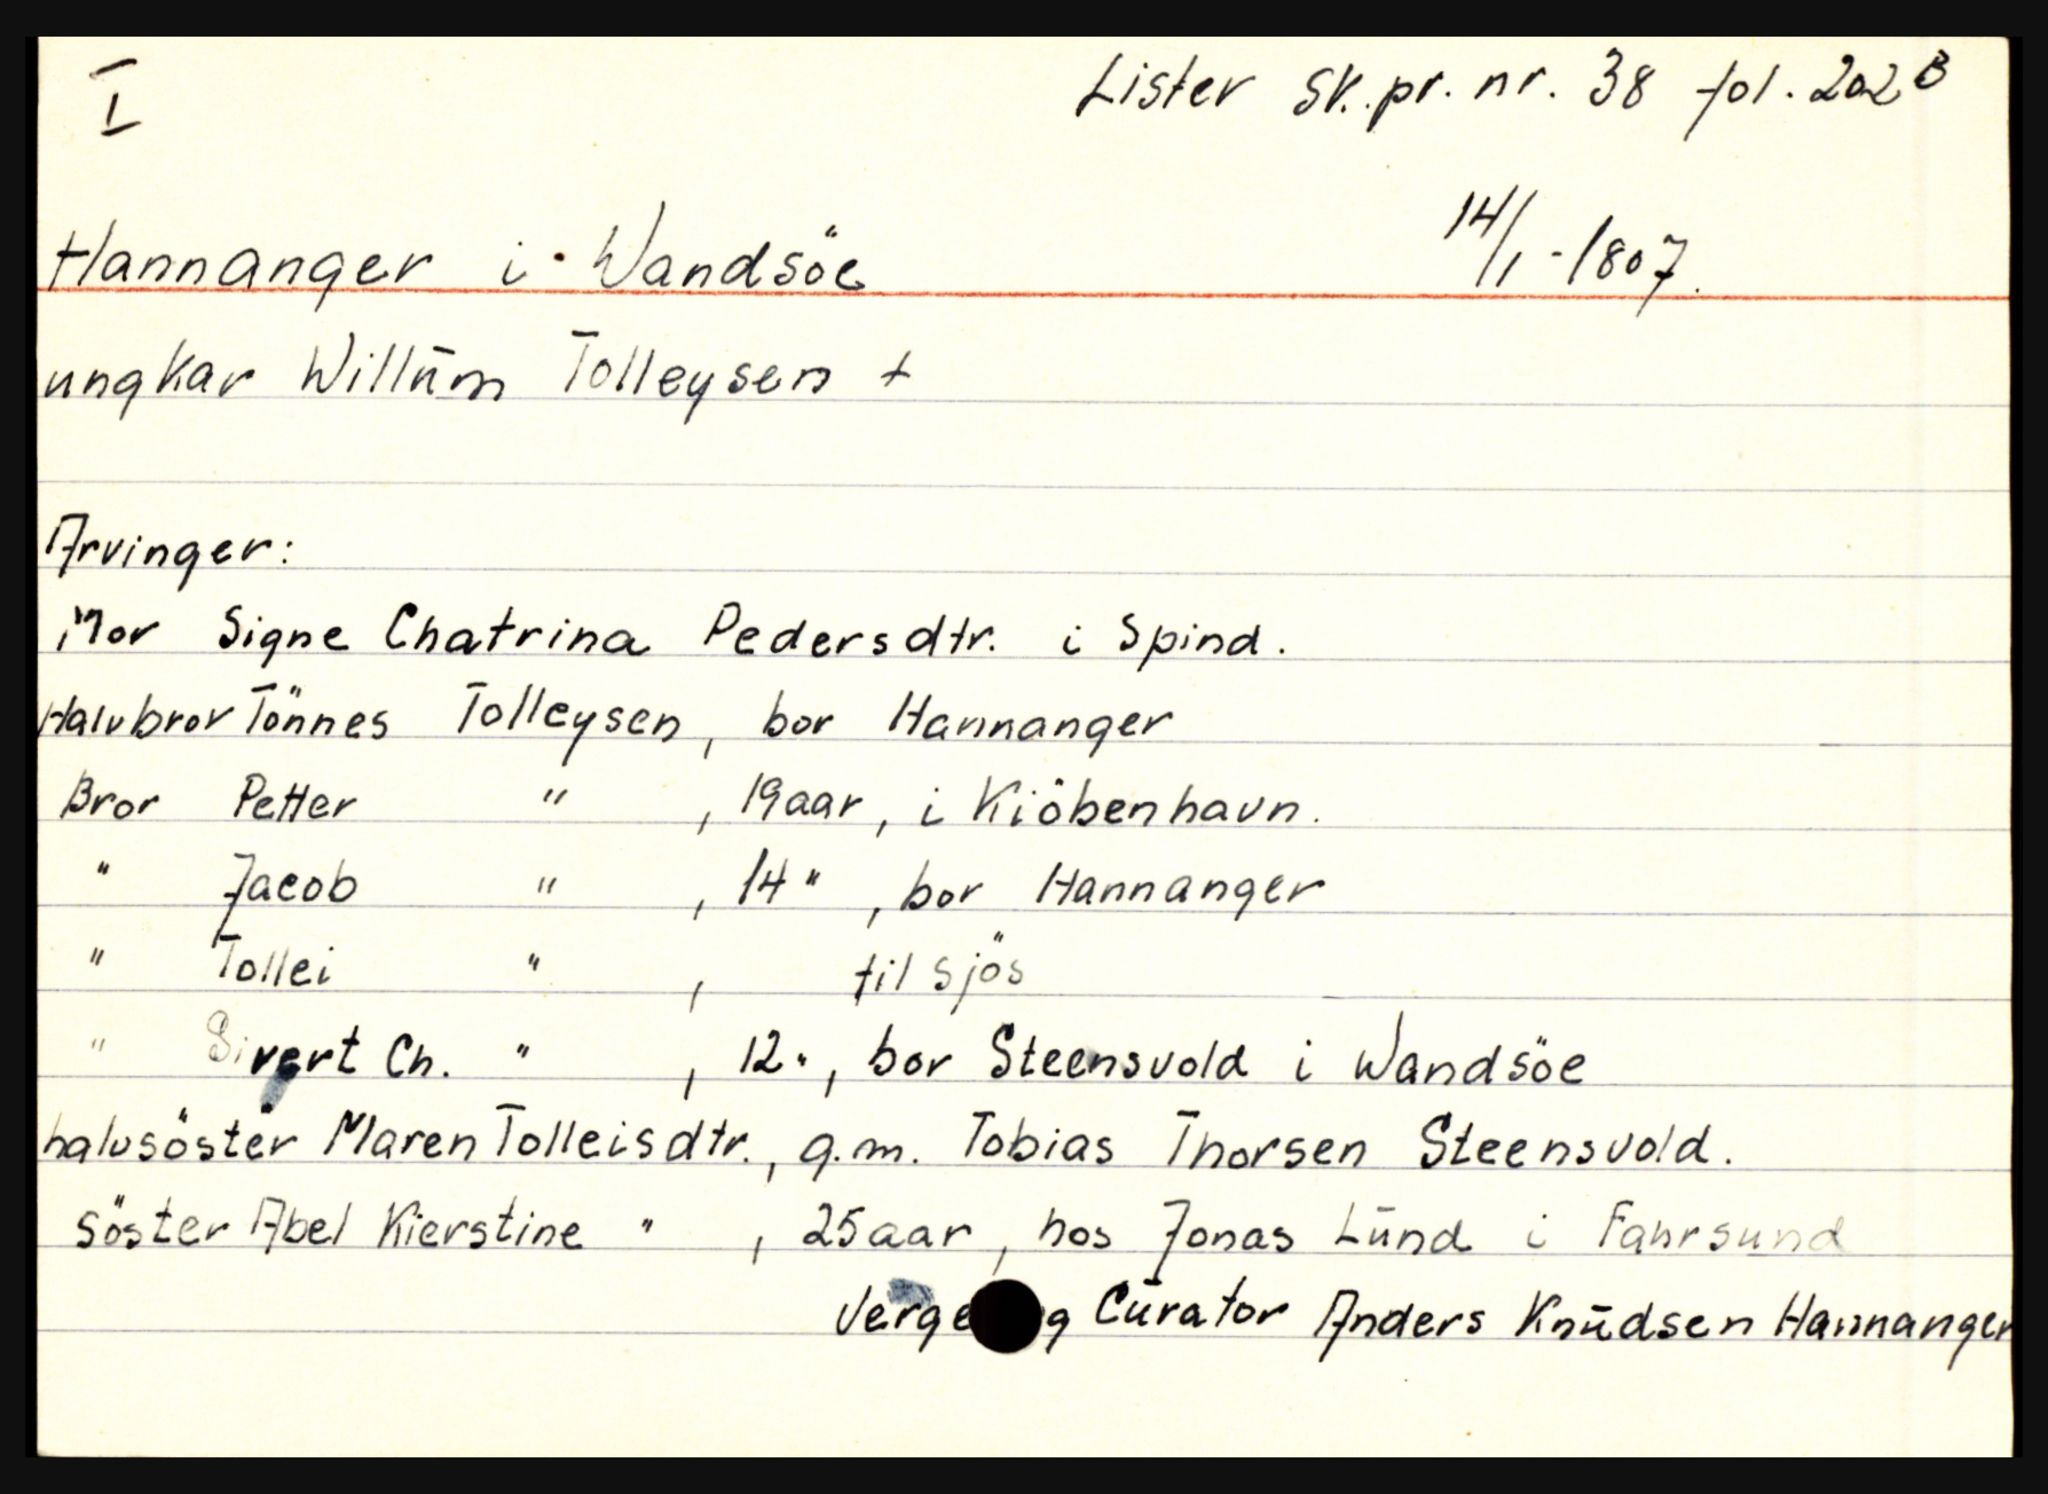 I
Lister Sk.pr. nr. 38 fol. 202 B
Hannanger i Wandsöe 14/1-1807.
ungkar Willūm Tolleysen +
Arvinger:
Mor Signe Chatrina Pedersdtr. i Spind.
Halvbror Tönnes Tolleysen, bor Hannanger
Bror Petter " , 19 aar, i Kiöbenhavn.
" Jacob " , 14 " , bor Hannanger
" Tollei " , til sjös
" Sivert Ch. " , 12 " , bor Steensvold i Wandsöe
halvsöster Maren Tolleisdtr., g.m. Tobias Thorsen Steensvold.
söster Abel Kierstine " , 25 aar, hos Jonas Lūnd i Fahrsund
Verge g Cūrator Anders Knūdsen Hannanger